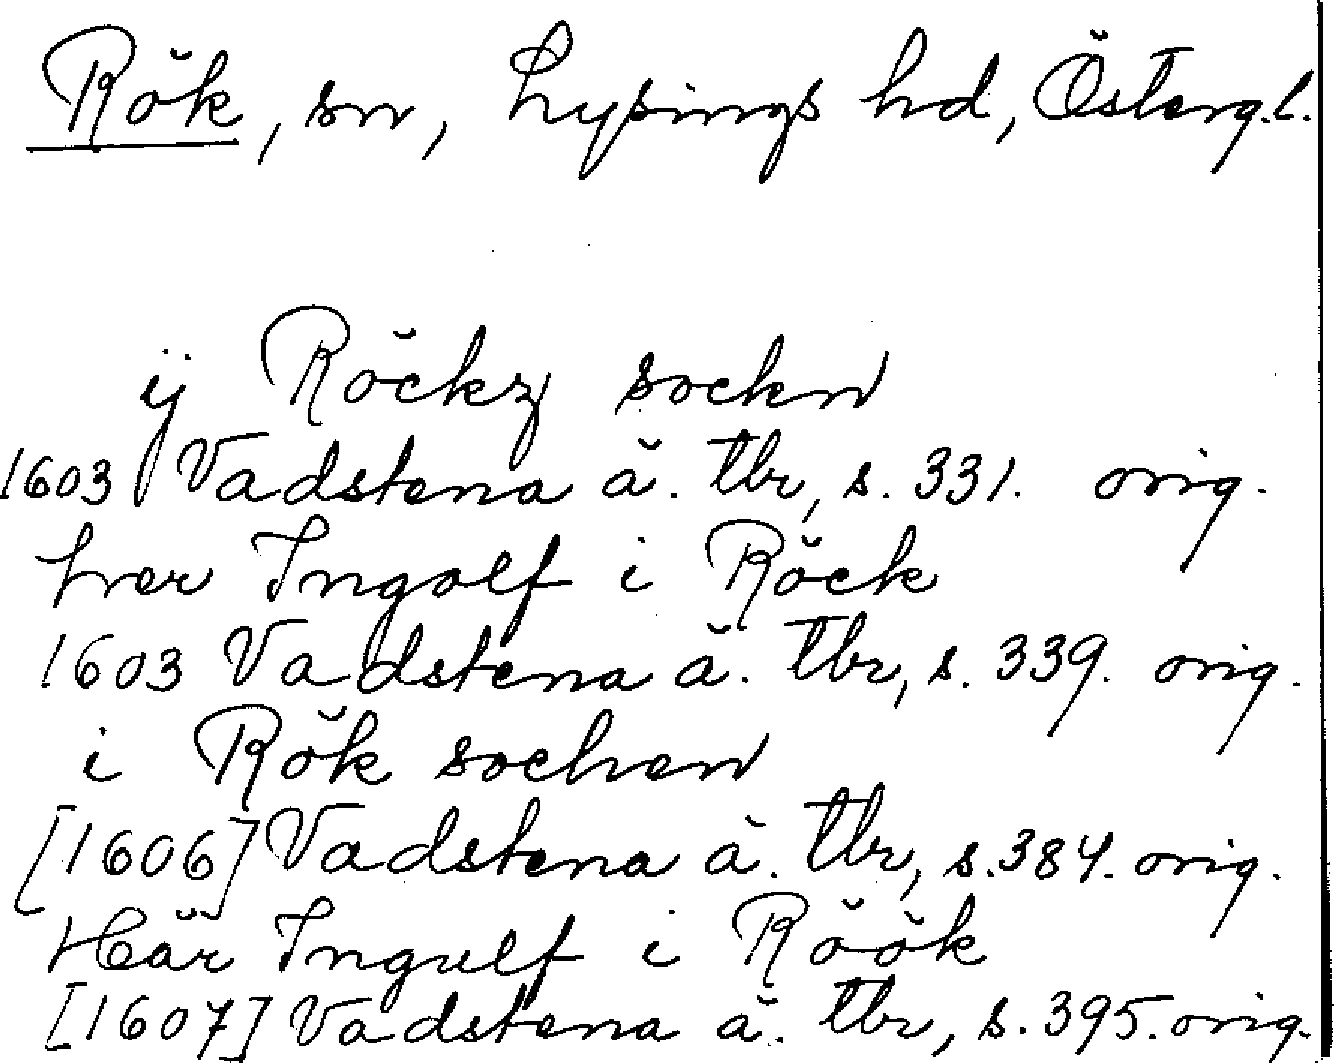 Rök, sn, Lysings hd, Österg.l.
ÿ Röckz sockn
1603 Vadstena ä. tbr, s. 331. orig.
her Ingolf i Röck
1603 Vadstena ä. tbr, s. 339. orig.
i Rök sochen
[1606] Vadstena ä. tbr, s. 384. orig.
Häär Ingulf i Röök
[1607] Vadstena ä. tbr, s. 395. orig.